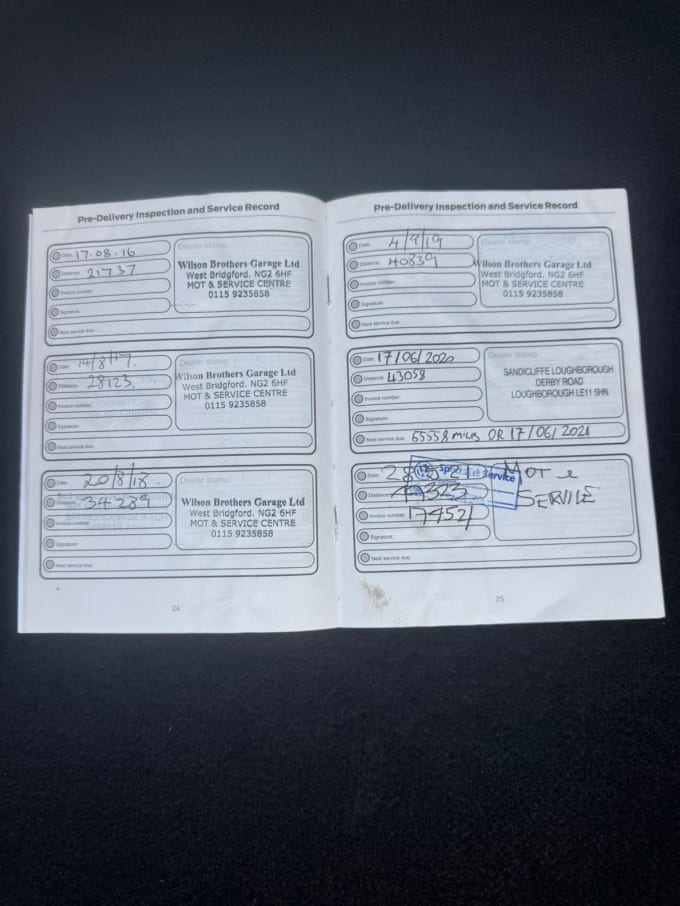 Pre-Delivery Inspection and Service Record
Date: 17.08.16
Distance: 21737
Invoice number:
Signature:
Next service due:
Dealer stamp
Wilson Brothers Garage Ltd
West Bridgford. NG2 6HF
MOT & SERVICE CENTRE
0115 9235858
Date: 14/8/17.
Distance: 28123
Invoice number:
Signature:
Next service due:
Dealer stamp
Wilson Brothers Garage Ltd
West Bridgford. NG2 6HF
MOT & SERVICE CENTRE
0115 9235858
Date: 20/8/18.
Distance: 34289
Invoice number:
Signature:
Next service due:
Dealer stamp
Wilson Brothers Garage Ltd
West Bridgford. NG2 6HF
MOT & SERVICE CENTRE
0115 9235858
24
Pre-Delivery Inspection and Service Record
Date: 4/9/19
Distance: 40839
Invoice number:
Signature:
Next service due:
Dealer stamp
Wilson Brothers Garage Ltd
West Bridgford. NG2 6HF
MOT & SERVICE CENTRE
0115 9235858
Date: 17/06/2020
Distance: 43058
Invoice number:
Signature:
Next service due: 55558 miles OR 17/06/2021
Dealer stamp
SANDICLIFFE LOUGHBOROUGH
DERBY ROAD
LOUGHBOROUGH LE11 5HN
Date:
Distance:
Invoice number: 17452
Signature:
Next service due:
Service
MOT &
SERVICE
25